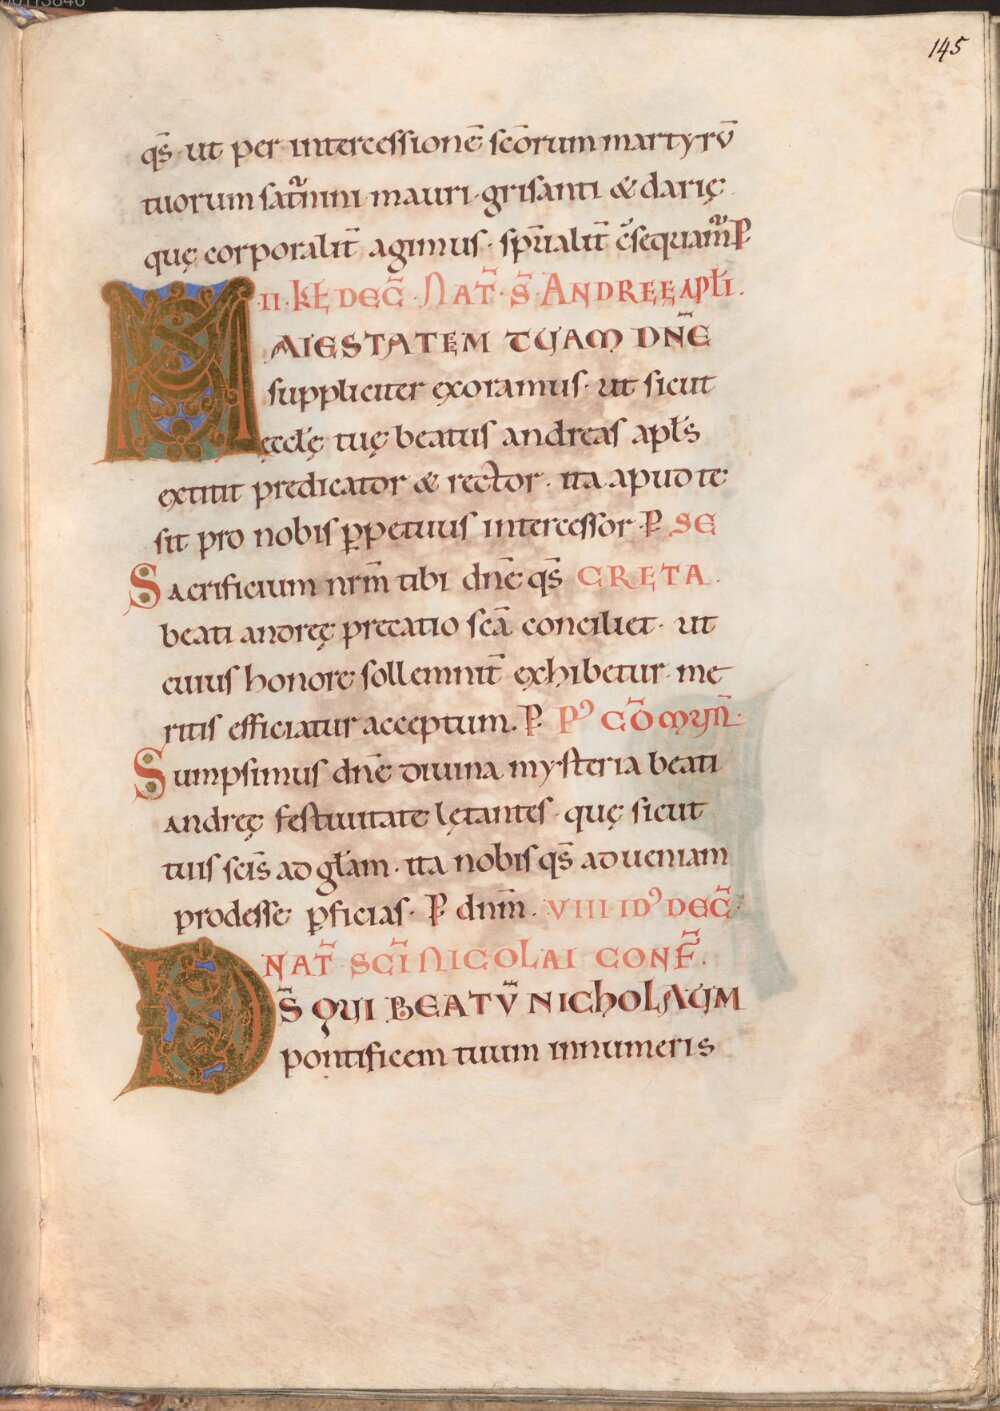 145
qs̄ · ut per intercessionē scōrum martyrū
tuorum saturnini · mauri · grisanti & darię
quę corporalit̄ agimus · sp̄ualit̄ c̄sequamur P̄
II · KŁ DEC̄ · NAT̄ · S̄ · ANDREĘ APƚI ·
MAIESTATEM TUAM DN̄E
suppliciter exoramus · ut sicut
ęccƚę tuę beatus andreas apƚs
extitit predicator & rector · ita apud te
sit pro nobis ꝑpetuus intercessor · P̄ SE
Sacrificium nrm̄ tibi dn̄e qs̄ CRETA ·
beati andreę precatio scā conciliet · ut
cuius honore sollemnit̄ exhibetur · me
ritis efficiatur acceptum · P̄ · Pꝰ CŌMŪN̄ ·
Sumpsimus dn̄e divina mysteria beati
andreę festivitate lętantes · quę sicut
tuis scīs ad gƚam · ita nobis qs̄ ad veniam
prodesse ꝑficias · P̄ dnm̄ · VIII IDꝰ DEC̄
NAT̄ SCĪ NICOLAI CONF̄ ·
DS̄ QUI BEATŪ NICHOLAUM
pontificem tuum innumeris